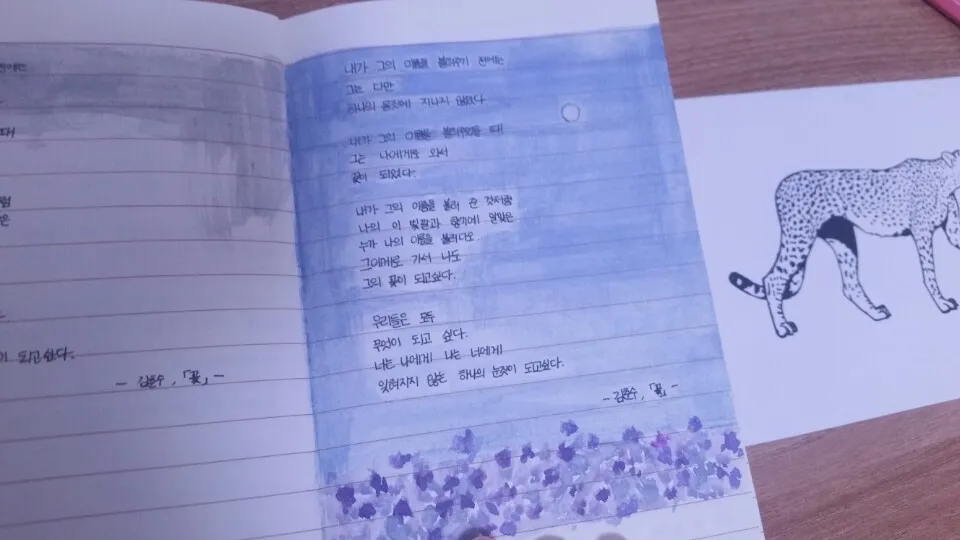 전에는
때
럼
은
이 되고싶다.
- 김춘수, 「꽃」 -
내가 그의 이름을 불러주기 전에는
그는 다만
하나의 몸짓에 지나지 않았다.
내가 그의 이름을 불러주었을 때
그는 나에게로 와서
꽃이 되었다.
내가 그의 이름을 불러 준 것처럼
나의 이 빛깔과 향기에 알맞은
누가 나의 이름을 불러다오.
그에게로 가서 나도
그의 꽃이 되고싶다.
우리들은 모두
무엇이 되고 싶다.
너는 나에게 나는 너에게
잊혀지지 않는 하나의 눈짓이 되고싶다.
- 김춘수, 「꽃」 -